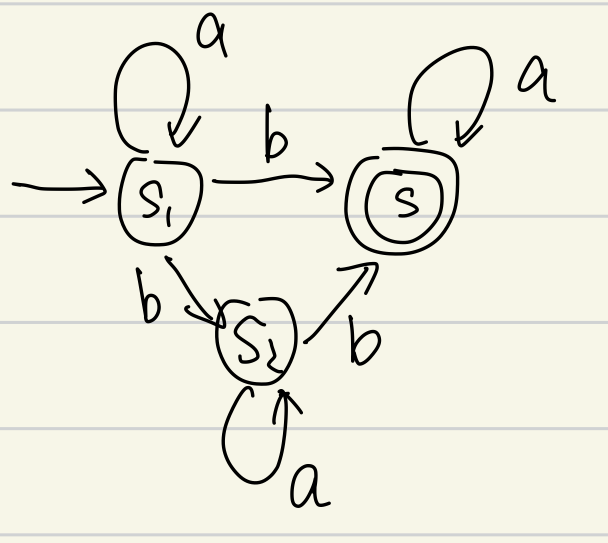 a
a
b
S₁
S
b
S₂
b
a